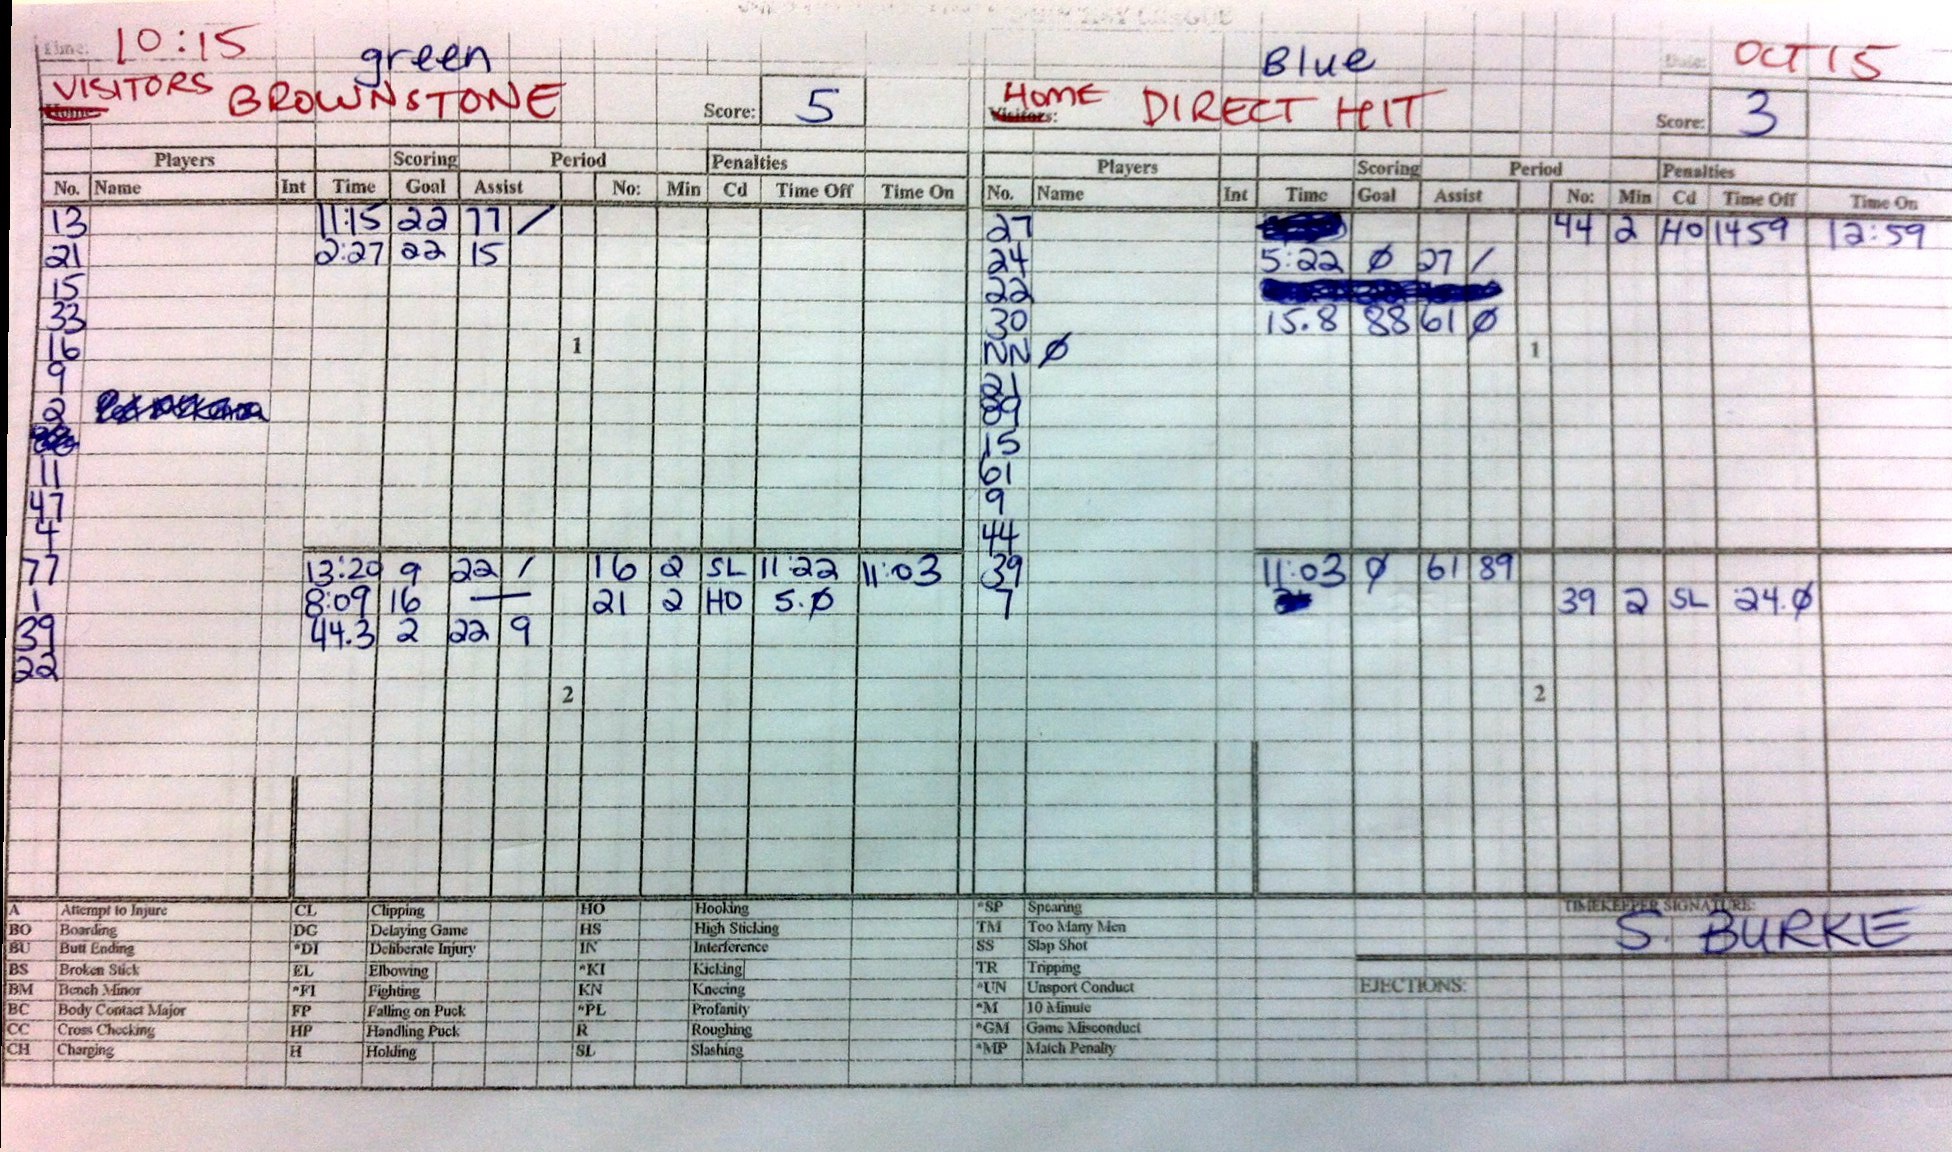 Time: 10:15 green Blue Date: OCT 15
VISITORS BROWNSTONE Score: 5 HOME Visitors: DIRECT HIT Score: 3
Players Scoring Period Penalties Players Scoring Period Penalties
No. Name Int Time Goal Assist No: Min Cd Time Off Time On No. Name Int Time Goal Assist No: Min Cd Time Off Time On
13 11:15 22 77 / 27 44 2 HO 1459 12:59
21 2:27 22 15 24 5:22 Ø 27 /
15 22
33 30 15.8 88 61 Ø
16 1 NN Ø 1
9 21
2 89
15
11 61
47 9
4 44
77 13:20 9 22 / 16 2 SL 11:22 11:03 39 11:03 Ø 61 89
1 8:09 16 — 21 2 HO 5.Ø 7 39 2 SL :24.Ø
39 44.3 2 22 9
22
2 2
A Attempt to Injure CL Clipping HO Hooking *SP Spearing TIMEKEEPER SIGNATURE:
BO Boarding DG Delaying Game HS High Sticking TM Too Many Men S. BURKE
BU Butt Ending *DI Deliberate Injury IN Interference SS Slap Shot
BS Broken Stick EL Elbowing *KI Kicking TR Tripping
BM Bench Minor *FI Fighting KN Kneeing *UN Unsport Conduct EJECTIONS:
BC Body Contact Major FP Falling on Puck *PL Profanity *M 10 Minute
CC Cross Checking HP Handling Puck R Roughing *GM Game Misconduct
CH Charging H Holding SL Slashing *MP Match Penalty